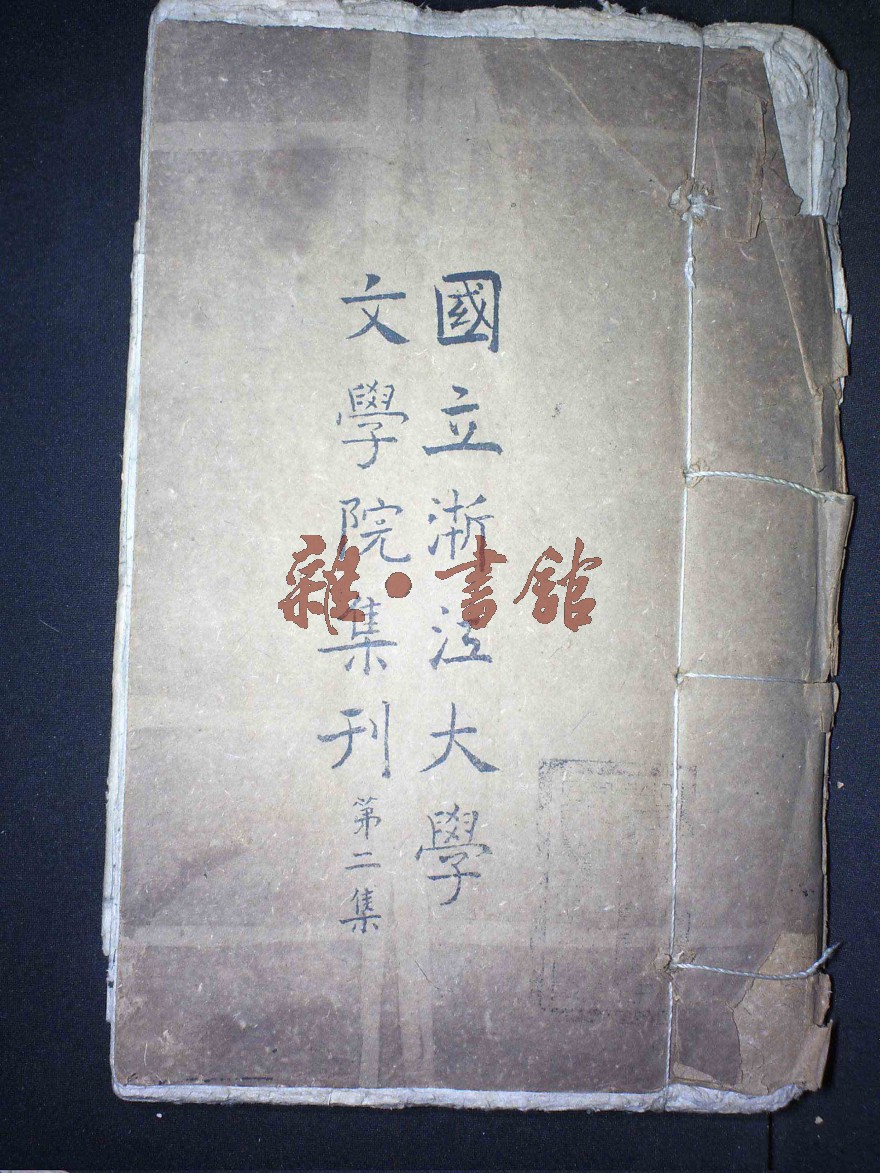 國立浙江大學
文學院集刊 第二集
雜·書館